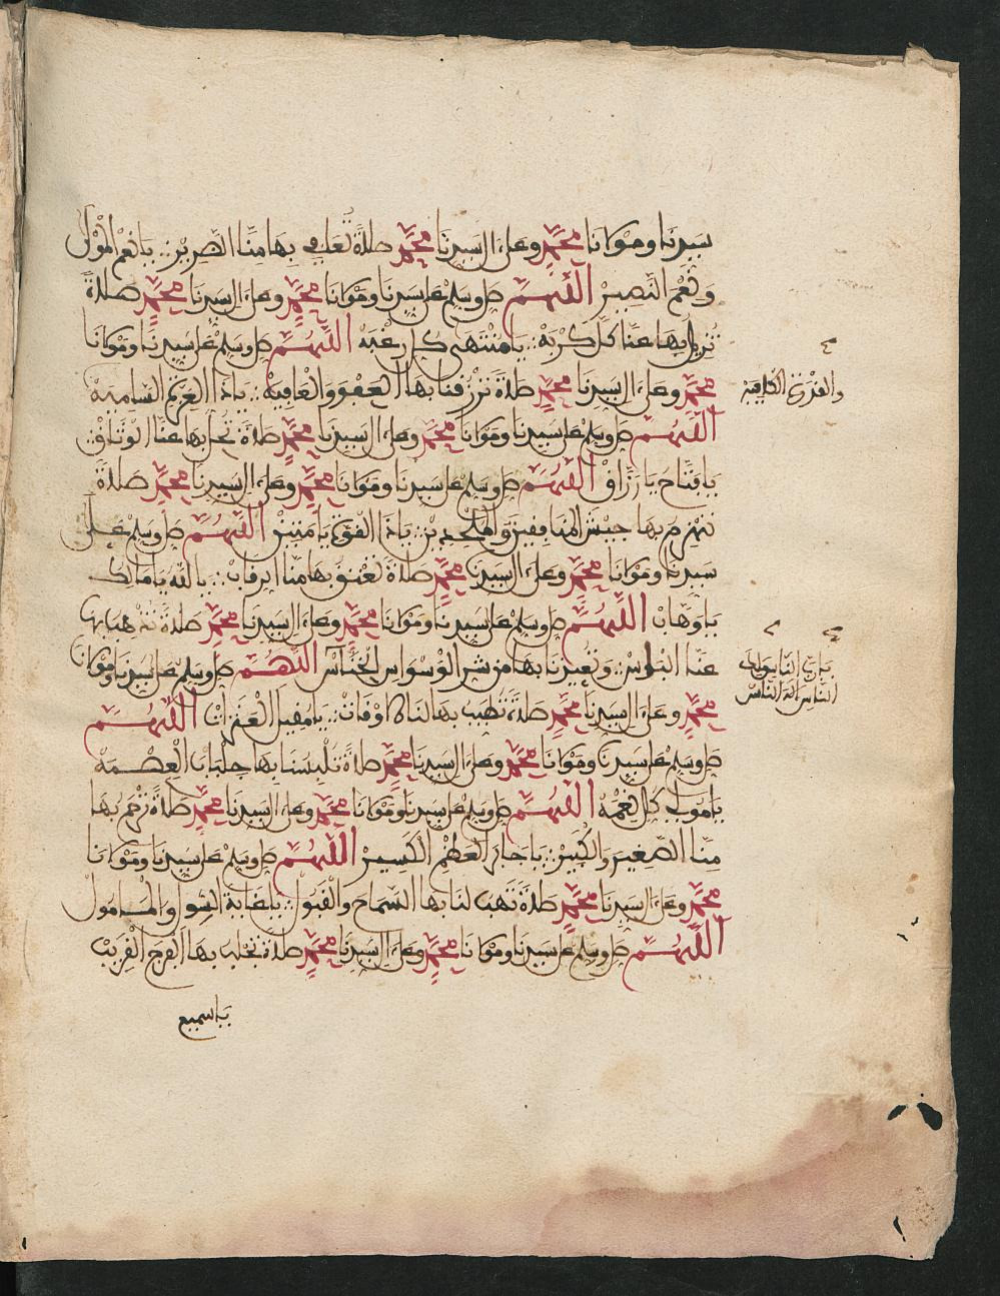 سيدنا ومولانا محمد وعلى ال سيدنا محمد صلاة تعلى بها منا الضرير يا نعم المولى
ونعم النصير اللهم صل وسلم على سيدنا ومولانا محمد وعلى ال سيدنا محمد صلاة
تزيل بها عنا كل كربة يا منتهى كل رغبة اللهم صل وسلم على سيدنا ومولانا
محمد وعلى ال سيدنا محمد صلاة ترزقنا بها العفو والعافية يا ذا العزة السامية
والقدرة الكافية
اللهم صل وسلم على سيدنا ومولانا محمد وعلى ال سيدنا محمد صلاة تحل بها عنا الوثاق
يا فتاح يا رزاق اللهم صل وسلم على سيدنا ومولانا محمد وعلى ال سيدنا محمد صلاة
تهزم بها جيش المنافقين والملحدين يا ذا القوة يا متين اللهم صل وسلم على
سيدنا ومولانا محمد وعلى ال سيدنا محمد صلاة تعتق بها منا الرقاب يا الله يا مالك
يا وهاب اللهم صل وسلم على سيدنا ومولانا محمد وعلى ال سيدنا محمد صلاة تذهب بها
عنا البؤس وتعيذنا بها من شر الوسواس الخناس اللهم صل وسلم على سيدنا ومولانا
يا رب الناس يا ملك
الناس اله الناس
محمد وعلى ال سيدنا محمد صلاة تطيب بها لنا الاوقات يا مقيل العثرات اللهم
صل وسلم على سيدنا ومولانا محمد وعلى ال سيدنا محمد صلاة تلبسنا بها جلباب العصمة
يا مولي كل نعمة اللهم صل وسلم على سيدنا ومولانا محمد وعلى ال سيدنا محمد صلاة ترحم بها
منا الصغير والكبير يا جابر العظم الكسير اللهم صل وسلم على سيدنا ومولانا
محمد وعلى ال سيدنا محمد صلاة تهب لنا بها السماح والقبول يا غاية السول والمامول
اللهم صل وسلم على سيدنا ومولانا محمد وعلى ال سيدنا محمد صلاة تجلب بها الفرج القريب
يا سميع